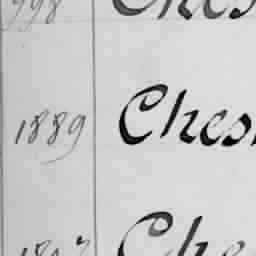 998 Ches
1889 Ches
Che